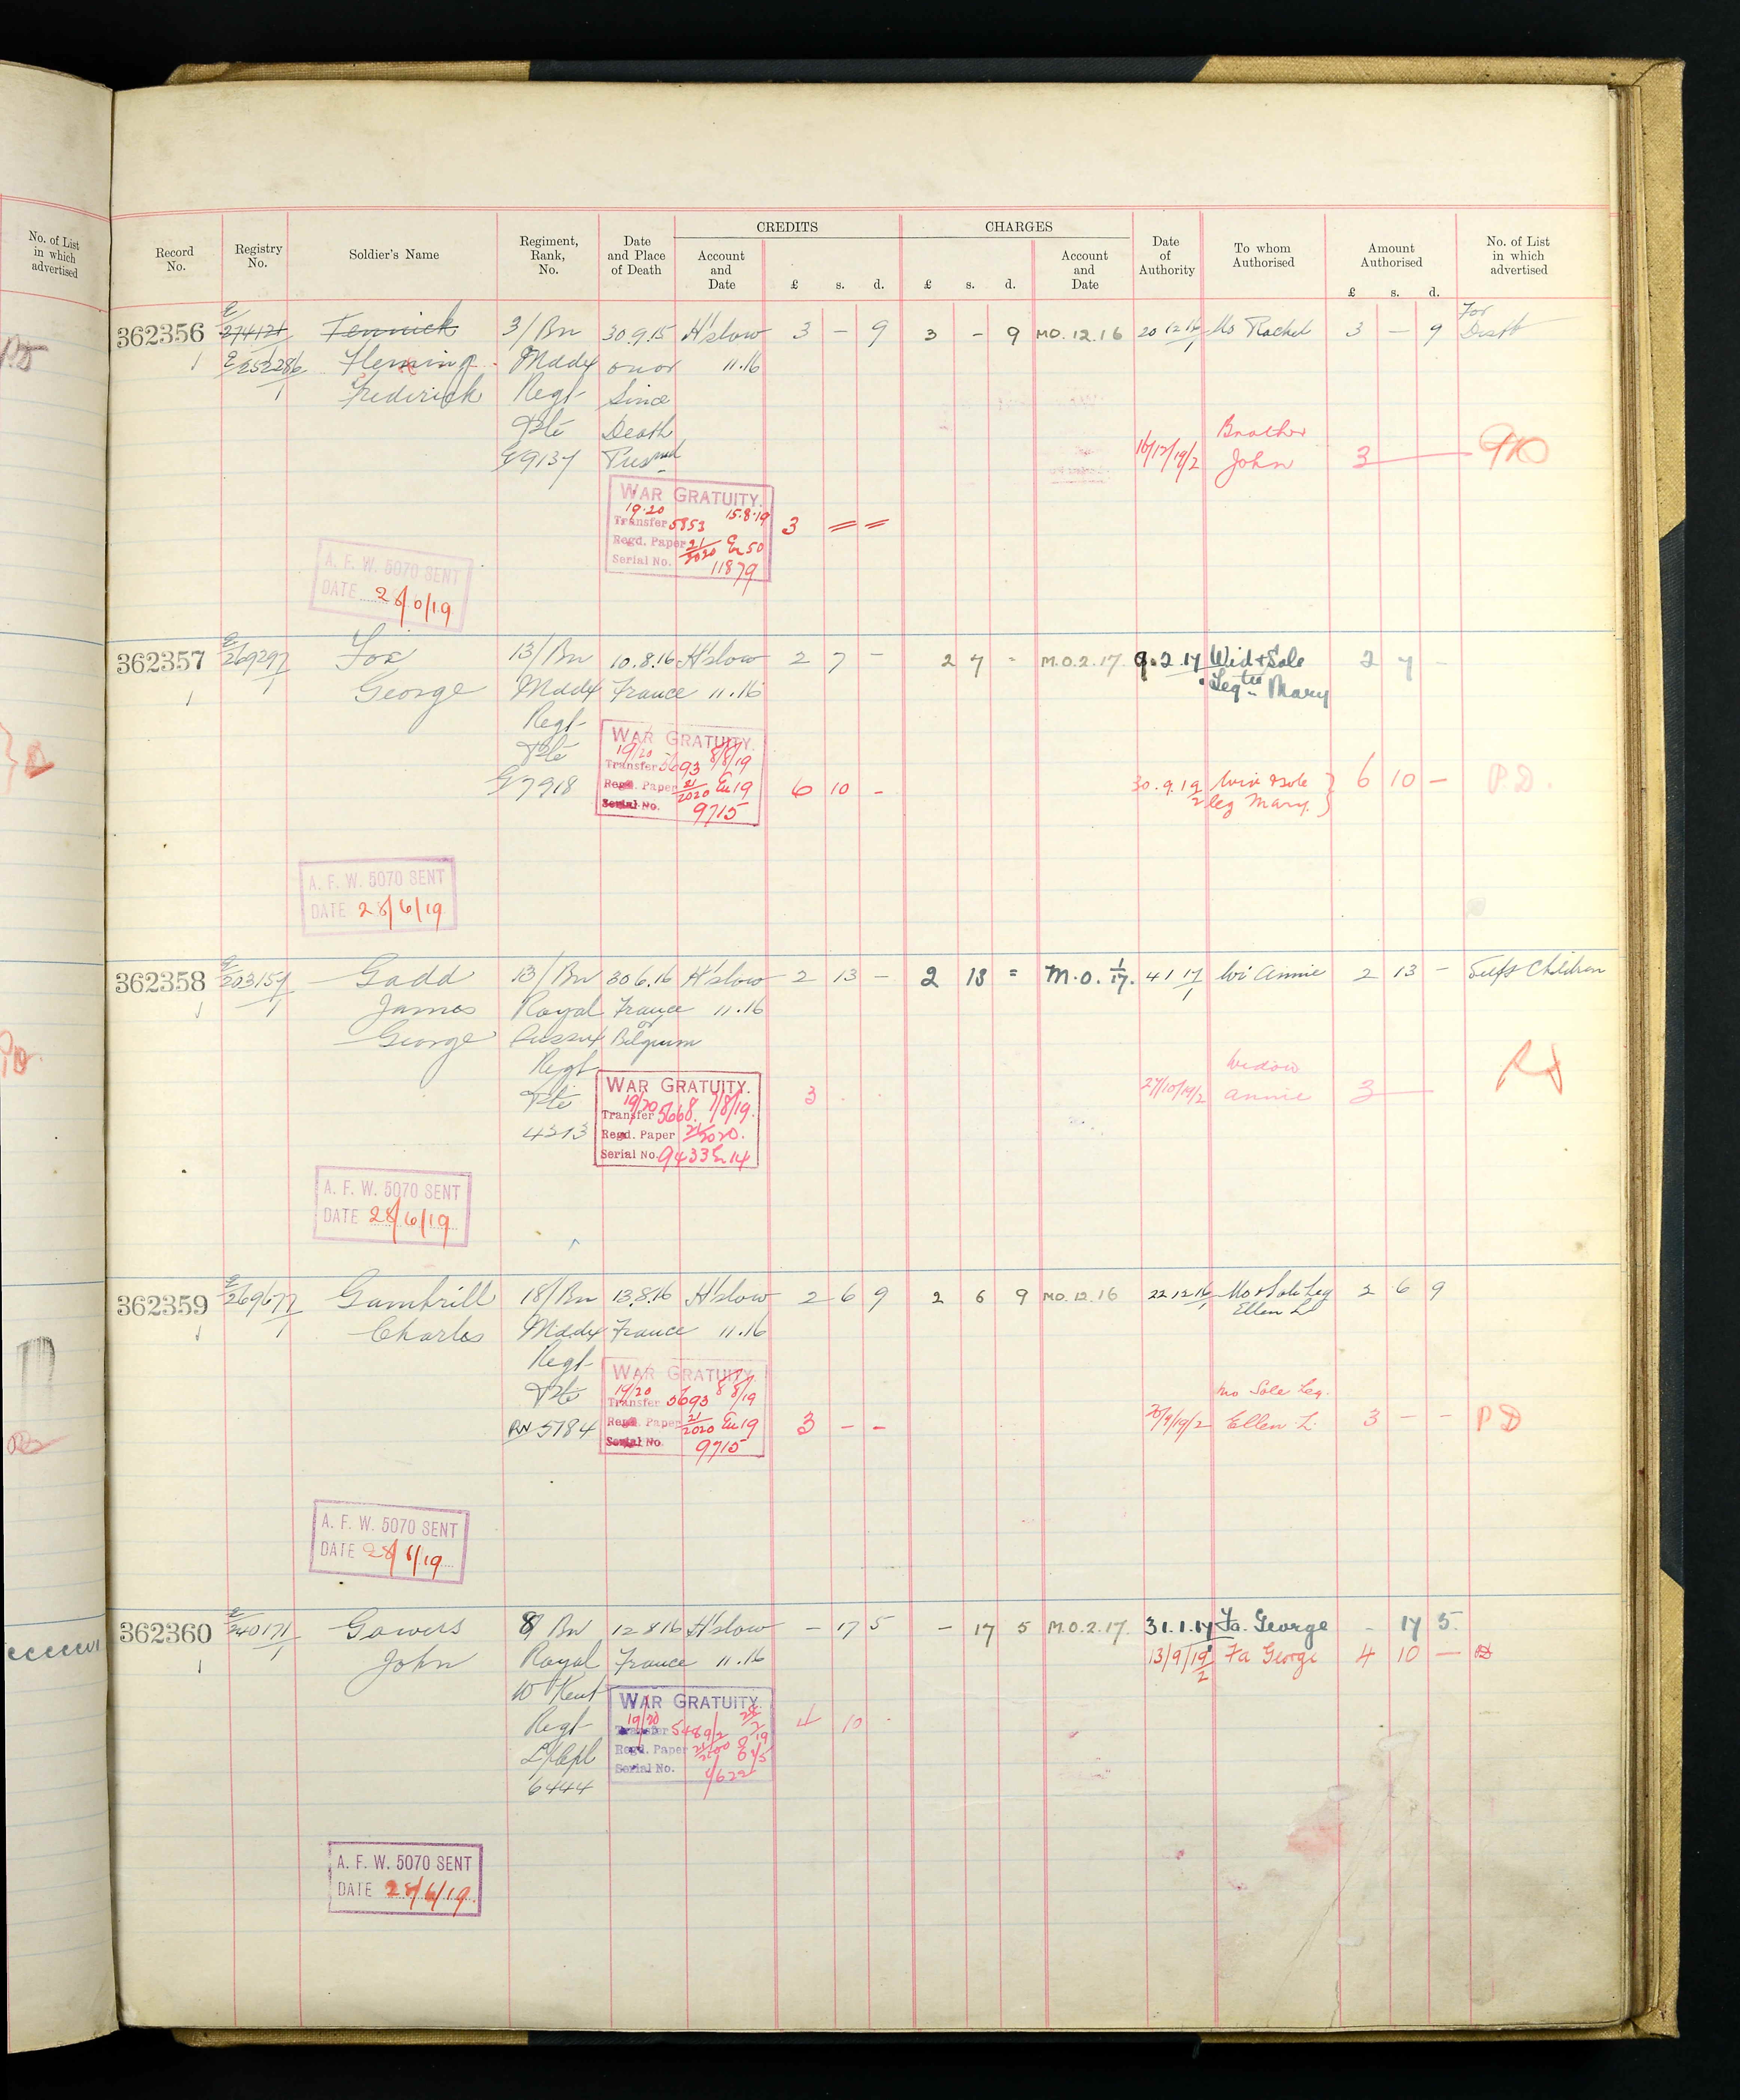 No. of List
in which
advertised
Record
No.
Registry
No.
Soldier's Name
Regiment,
Rank,
No.
Date
and Place
of Death
CREDITS
Account
and
Date
£ s. d.
CHARGES
£ s. d.
Account
and
Date
Date
of
Authority
To whom
Authorised
Amount
Authorised
£ s. d.
No. of List
in which
advertised
362356 Fennick 3/Bn 30.9.15 H'slow 3 – 9 3 – 9 MO.12.16 20 12 16 Mo Rachel 3 – 9 For
Fleming Middx on or 11.16 Distn
Frederick Regt Since
Pte Death
G/9137 Presumed
16/12/19/2 Brother
John 3
WAR GRATUITY.
19.20 15.8.19
Transfer 5853
Regd. Paper 21/2020 En 50
Serial No. 11879
3 = =
A. F. W. 5070 SENT
DATE 28/6/19
362357 E/269297/1 Fox 13/Bn 10.8.16 H'slow 2 7 – 2 7 - M.O.2.17. 9.2.17 Wid & Sole 2 7 –
George Middx France 11.16 Leg Mary
Regt
Pte
G/7918
WAR GRATUITY.
19/20 8/8/19
Transfer 5693
Regd. Paper 21/2020 En 19
Serial No. 9715
6 10 - 30.9.19/2 Wid & Sole } 6 10 – P.D.
leg Mary. }
A. F. W. 5070 SENT
DATE 28/6/19
362358 E/203157/1 Gadd 13/Bn 30.6.16 H'slow 2 13 – 2 13 = M.O. 1/17. 4 1 17/1 Wi Annie 2 13 – Self & Children
James Royal France 11.16
George Sussex or Belgium
Regt
Pte
4213
WAR GRATUITY.
19/20 7/8/19.
Transfer 5668.
Regd. Paper 21/2020.
Serial No. 9433 En 14
3 . . 27/10/19/2 Widow
Annie 3
A. F. W. 5070 SENT
DATE 28/6/19
362359 E/269677/1 Gambrill 18/Bn 13.8.16 H'slow 2 6 9 2 6 9 MO.12.16 22 12 16/1 Mo & Sole Leg 2 6 9
Charles Middx France 11.16 Ellen L
Regt
Pte
5784
WAR GRATUITY.
19/20 8/8/19
Transfer 5693
Regd. Paper 21/2020 En 19
Serial No. 9715
3 – – Mo Sole Leg.
Ellen L. 3 – – P D
A. F. W. 5070 SENT
DATE 28/6/19
362360 E/240171/1 Gowers 8/Bn 12.8.16 H'slow – 17 5 – 17 5 M.O.2.17. 31.1.17 Fa. George - 17 5.
John Royal France 11.16 13/9/19/2 Fa George 4 10 –
W Kent
Regt
L/Cpl
6444
WAR GRATUITY.
19/20
Transfer 5489/2
Regd. Paper
Serial No.
4 10 -
A. F. W. 5070 SENT
DATE 28/6/19